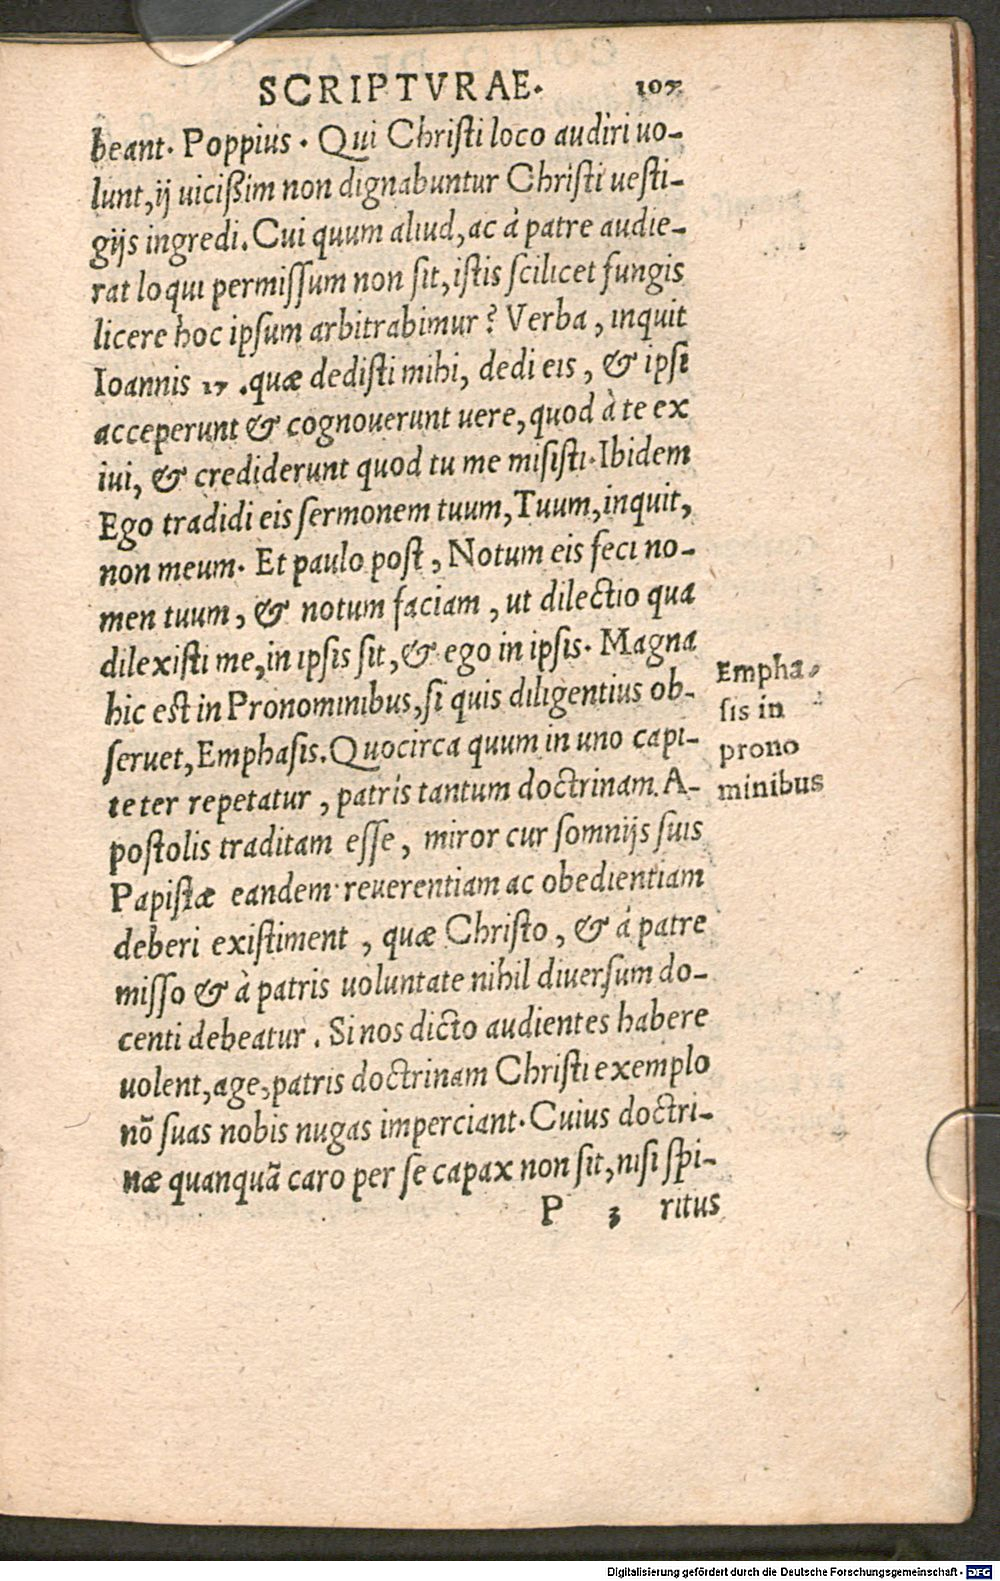 SCRIPTVRAE. 107
beant. Poppius. Qui Christi loco audiri uo-
lunt, ij uicißim non dignabuntur Christi uesti-
gijs ingredi. Cui quum aliud, ac à patre audie-
rat loqui permissum non sit, istis scilicet fungis
licere hoc ipsum arbitrabimur? Verba, inquit
Ioannis 17. quæ dedisti mihi, dedi eis, & ipsi
acceperunt & cognouerunt uere, quod à te ex
iui, & crediderunt quod tu me misisti. Ibidem
Ego tradidi eis sermonem tuum, Tuum, inquit,
non meum. Et paulo post, Notum eis feci no-
men tuum, & notum faciam, ut dilectio qua
dilexisti me, in ipsis sit, & ego in ipsis. Magna
hic est in Pronominibus, si quis diligentius ob-
seruet, Emphasis. Quocirca quum in uno capi-
te ter repetatur, patris tantum doctrinam A-
postolis traditam esse, miror cur somnijs suis
Papistæ eandem reuerentiam ac obedientiam
deberi existiment, quæ Christo, & à patre
misso & à patris uoluntate nihil diuersum do-
centi debeatur. Si nos dicto audientes habere
uolent, age, patris doctrinam Christi exemplo
nõ suas nobis nugas imperciant. Cuius doctri-
næ quanquã caro per se capax non sit, nisi spi-
P 3 ritus
Empha-
sis in
prono
minibus
Digitalisierung gefördert durch die Deutsche Forschungsgemeinschaft - DFG